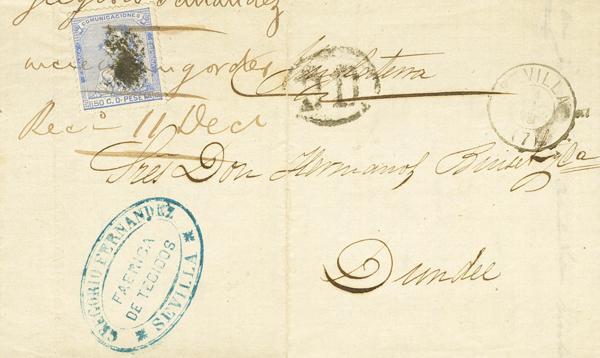 Fernandez
COMUNICACIONES
50 C. D. PESETA
Inglaterra
P.D.
SEVILLA
Rec. 11 Dec
Sres Don Hermanos
Dundee
GREGORIO FERNANDEZ
FABRICA
DE TEGIDOS
SEVILLA